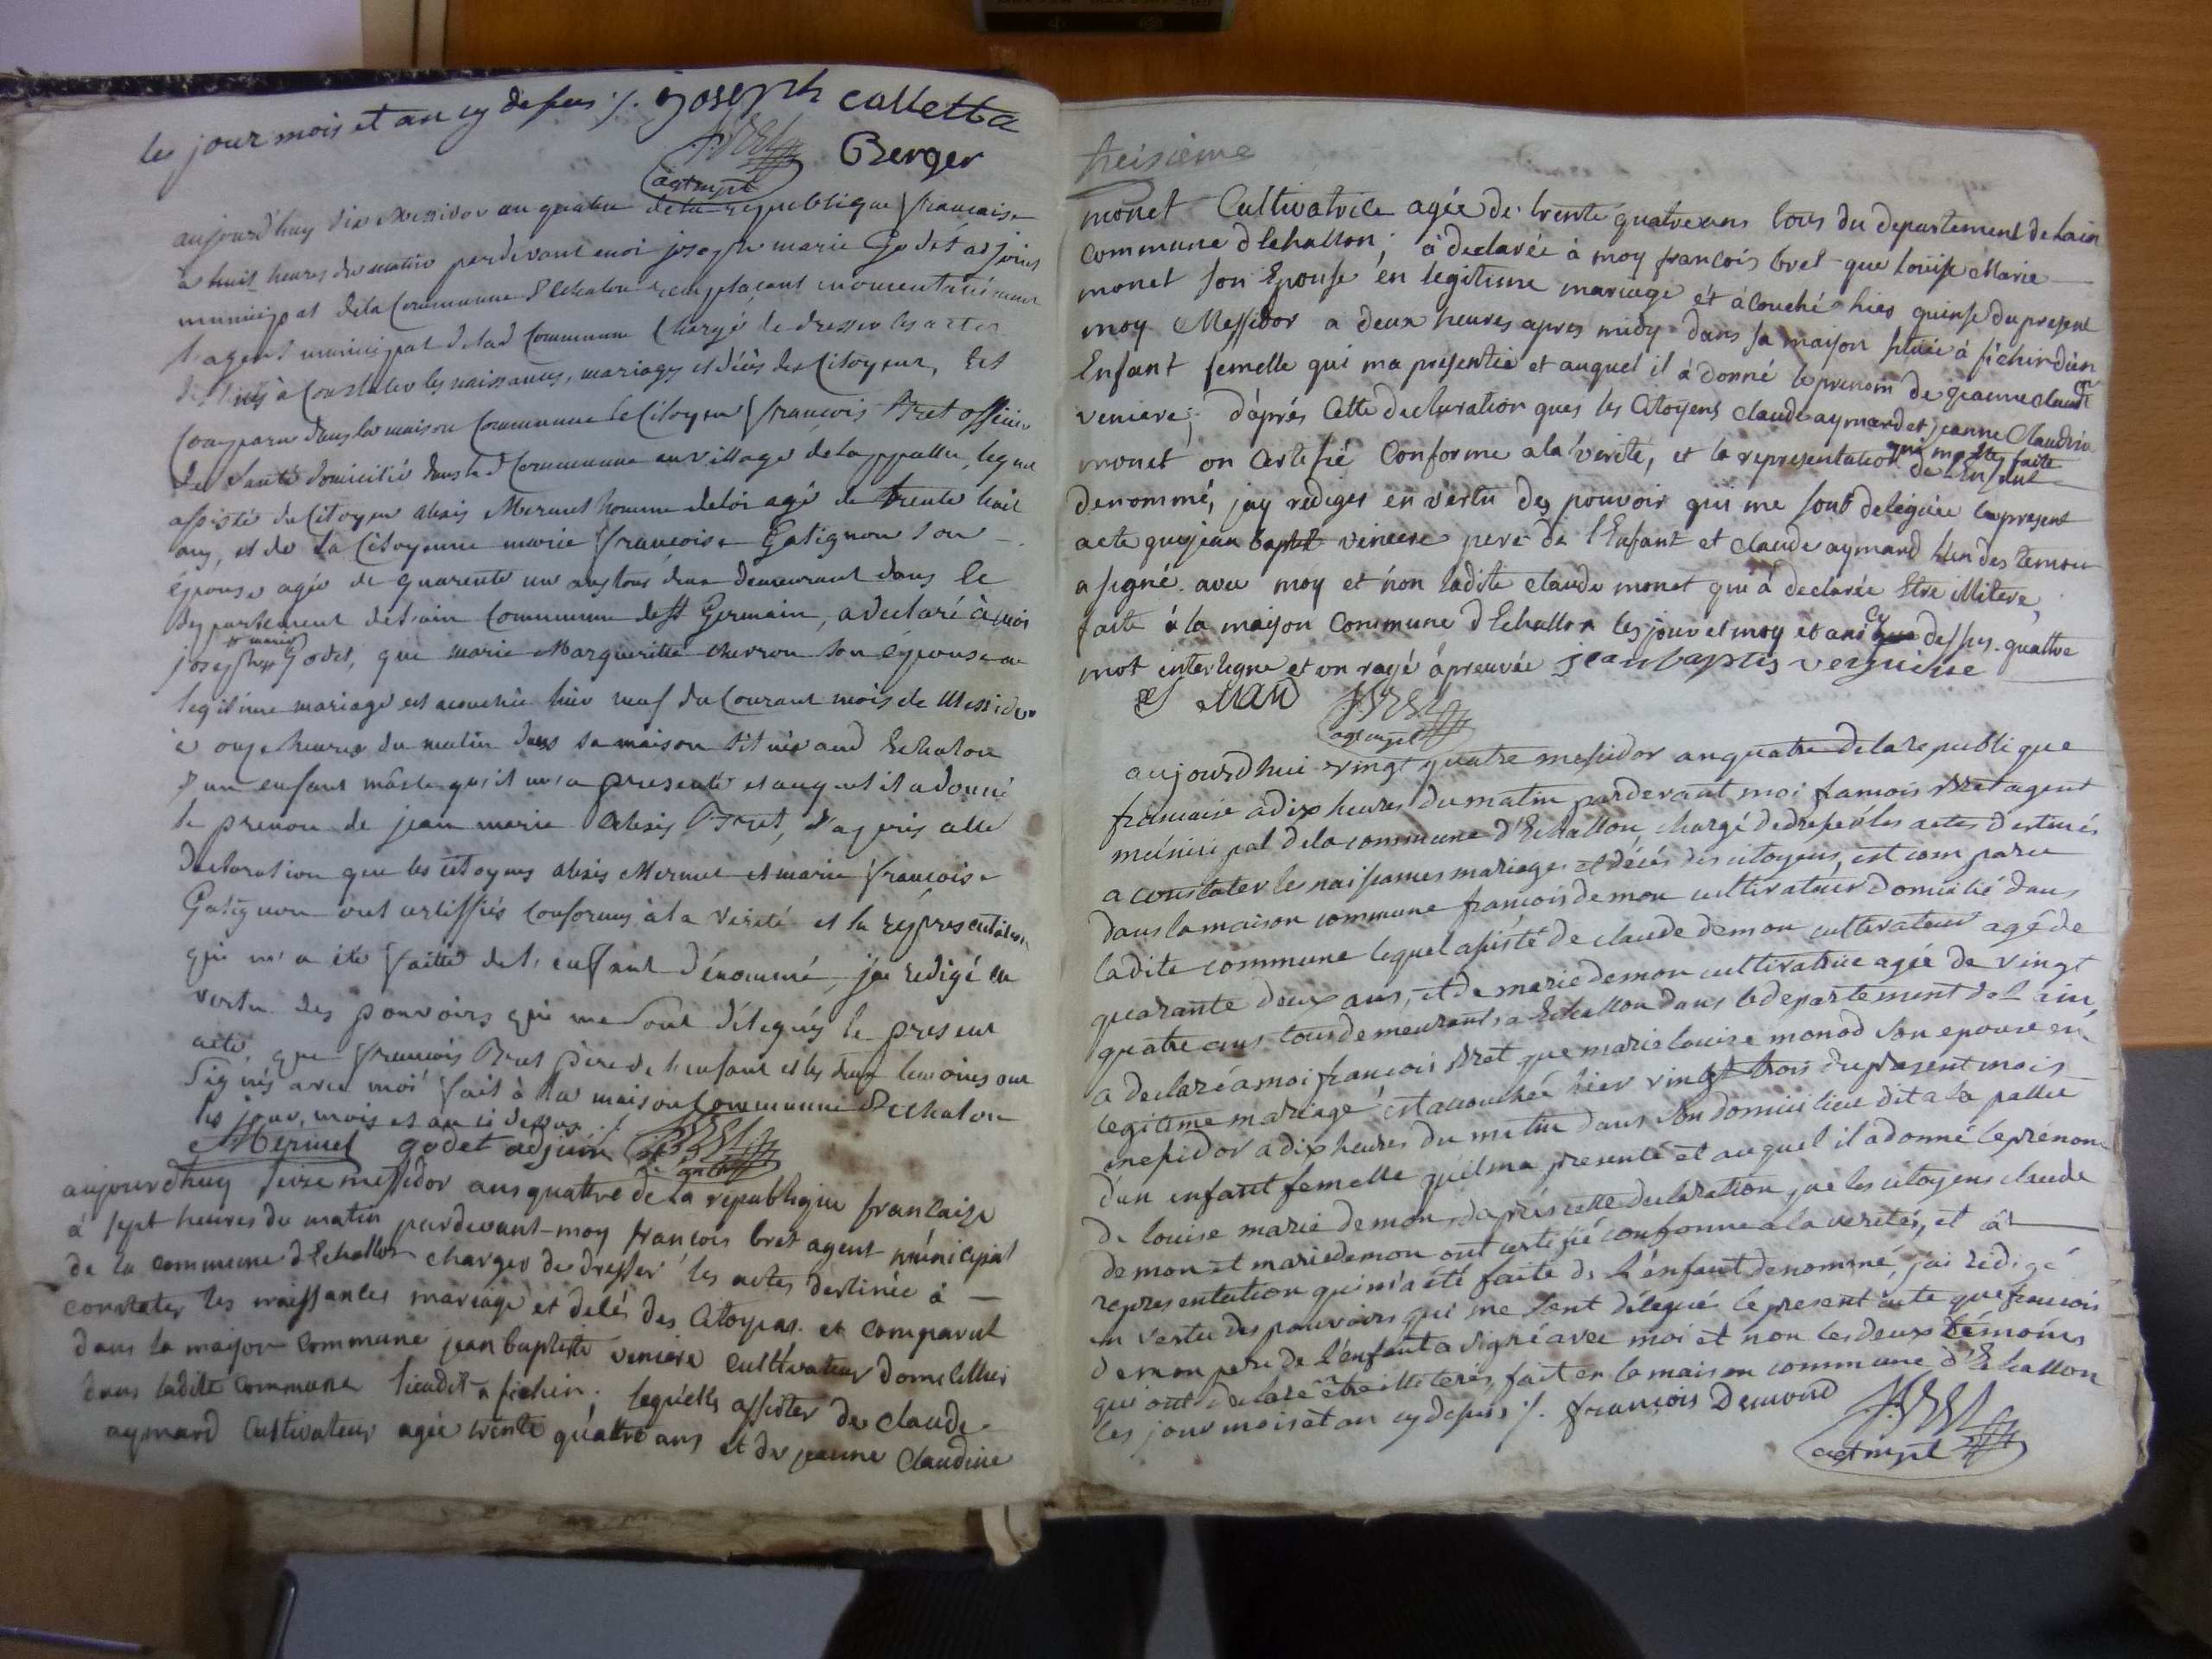 les jour mois et an cy dessus ./. joseph calletta
Berger
BRET
agt mpl
aujourd'huy dix Messidor an quatre de la republique francaise
à huit heures du matin pardevant moi joseph marie Godet adjoint
municipal de la Commune d'Echalon remplaçant momentanément
l'agent municipal de lad Commune Chargé de dresser les actes
destinés à Constater les naissances, mariages et décès des Citoyens, Est
Comparu dans la maison Commune le Citoyen francois Bret officier
de Santé domicilié dans lad Commune au village de lappallu, lequel
assisté du Citoyen alexis Mermet homme de loi agé de trente huit
ans, et de la Citoyenne marie francoise Gatignon son
épouse agée de quarente un ans tous deux demeurant dans le
departement de l'ain Commune de St Germain, a declaré à moi
joseph marie Godet, que marie Marguerite cherron son épouse en
legitime mariage est acouchée hier neuf du Courant mois de Messidor
à onze heures du matin dans sa maison située aud Echalon
d'un enfant mâsle qu'il m'a presenté et auquel il a donné
le prenom de jean marie Alexis Bret, d'apris cette
declaration que les citoyens alexis Mermet et marie francoise
Gatignon ont certiffiés conforme à la verité et la representation
qui m'a été faitte de l'enfant dénommé, j'ai redigé en
vertu des pouvoirs qui me sont délegués le present
acte, que francois Bret père de l'enfant et les deux temoins ont
signés avec moi fait à la maison Commune d'Echalon
les jour, mois et an ci dessus ./.
Mermet godet adjoint BRET
aujourdhuy seize messidor ans quattre de la republique francaize
à sept heures du matin pardevant moy francois bret agent municipal
de la commune d'Echallon charger de dresser les actes destinée à
constater les naissances mariage et delés des Citoyens et comparut
dans la maison commune jean baptiste veniere cultivateur domicillier
dans ladite commune lieudit a fichin; lequelle assister de claude
aymard cultivateur agée trente quattre ans et de jeanne Claudine
treisieme
monet Cultivatrice agée de trente quatre ans tous du departement de Lain
commune d'Echallon; à declarée à moy francois bret que louise Marie
monet son Epouse en legitime mariage ét àcouché hies quinse du present
moy Messidor a deux heures apres midy dans sa maison située à fichin d'un
Enfant femelle qui ma presentée et auquel il à donné le prenom de jeanne claudine
veniere; d'aprés Cette declaration ques les Citoyens claude aymard et jeanne Claudine
monet on Certefié Conforme a la verité, et la representation qui m'a ete faite de l'Enfant
denommé, jay rediger en vertu des pouvoir qui me sont deleguée le present
acte que jean baptist veniere peré de l'Enfant et claude aymard l'un des temoin
a signé avec moy et non ladite claude monet qui à declarée Etre illitere,
faite à la maison Commune d'Echallon les jour et moy et ans cy dessus. quattre
mot interligne et un rayé apreuvée jean baptis vernière
BRET
agt mpl
aujourdhui vingt quatre messidor an quatre de la republique
francaise à dix heures du matin pardevant moi francois Bret agent
municipal de la commune d'Echallon, chargé de dresser les actes destinés
a constater les naissances mariages et décès des citoyens, est comparu
dans la maison commune francois demon cultivateur domicilié dans
ladite commune lequel assisté de claude demon cultivateur agé de
quarante deux ans, et de marie demon cultivatrice agée de vingt
quatre ans tous demeurants a Echallon dans le departement de L'ain,
a declaré a moi francois Bret que marie louise monod son epouse en
legitime mariage est accouchée hier vingt trois du present mois
messidor a dix heures du matin dans son domicil lieu dit a la pallu
d'un enfant femelle qu'il ma presenté et auquel il a donné le prénom
de louise marie demon, daprès cette declaration que les citoyens claude
demon et marie demon ont certifié conforme a la verité, et la
representation qui m'a été faite de l'enfant denommé, jai rédigé
en vertu des pouvoirs qui me sont délegués le present acte que francois
demon pere de l'enfant a signé avec moi et non les deux témoins
qui ont declaré être illiterés, fait en la maison commune d'Echallon
les jour mois et an cy dessus ./. françois Demond BRET
agt mpl